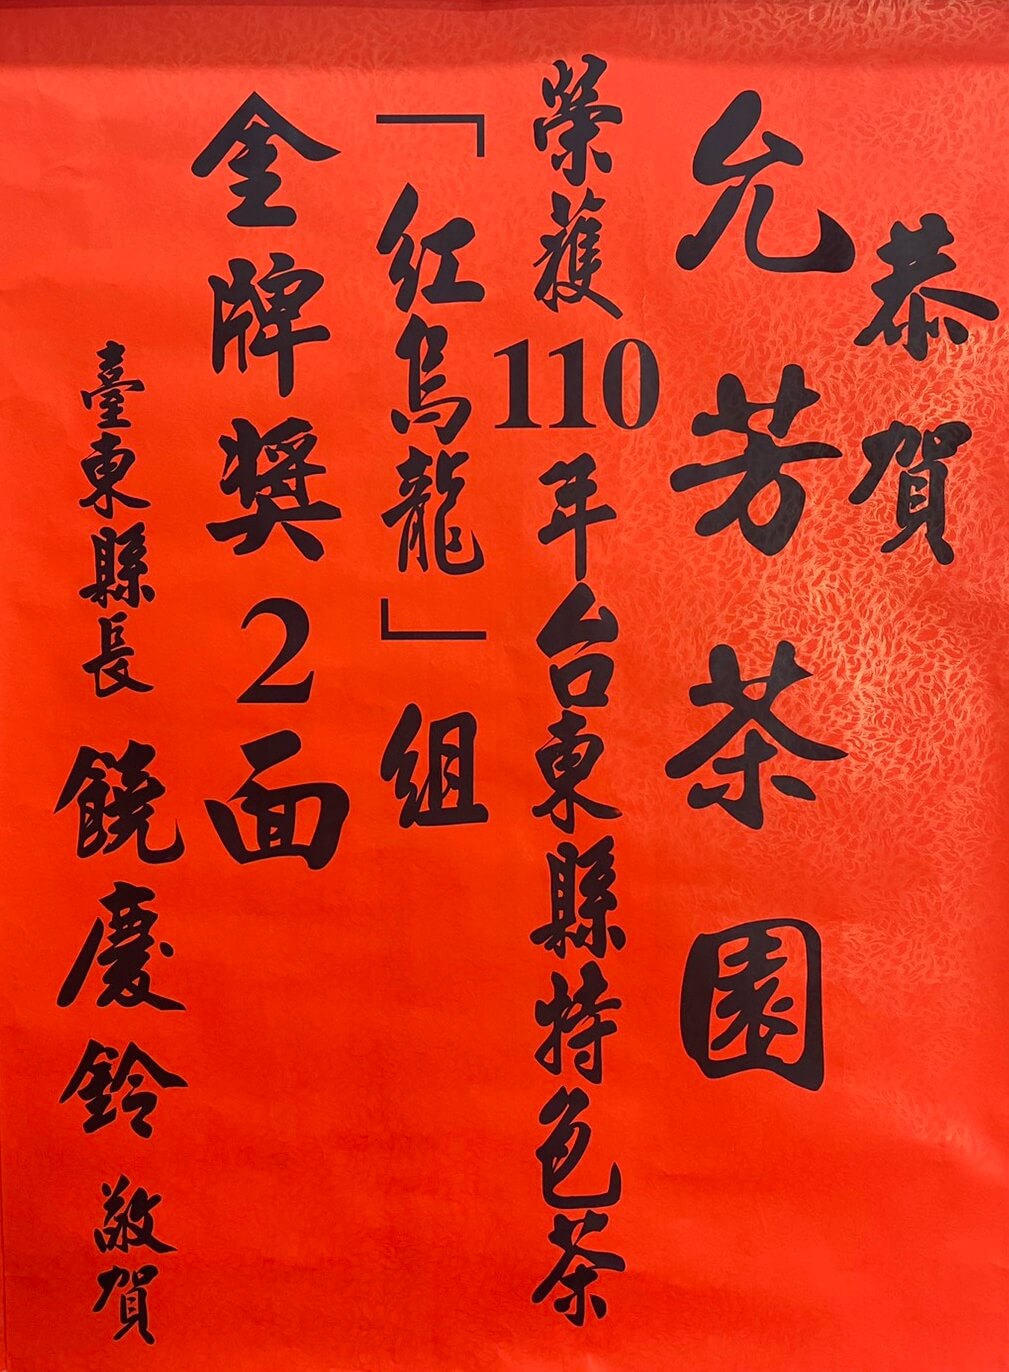 恭賀
允芳茶園
榮獲110年台東縣特色茶
「紅烏龍」組
金牌獎2面
臺東縣長 饒慶鈴 敬賀